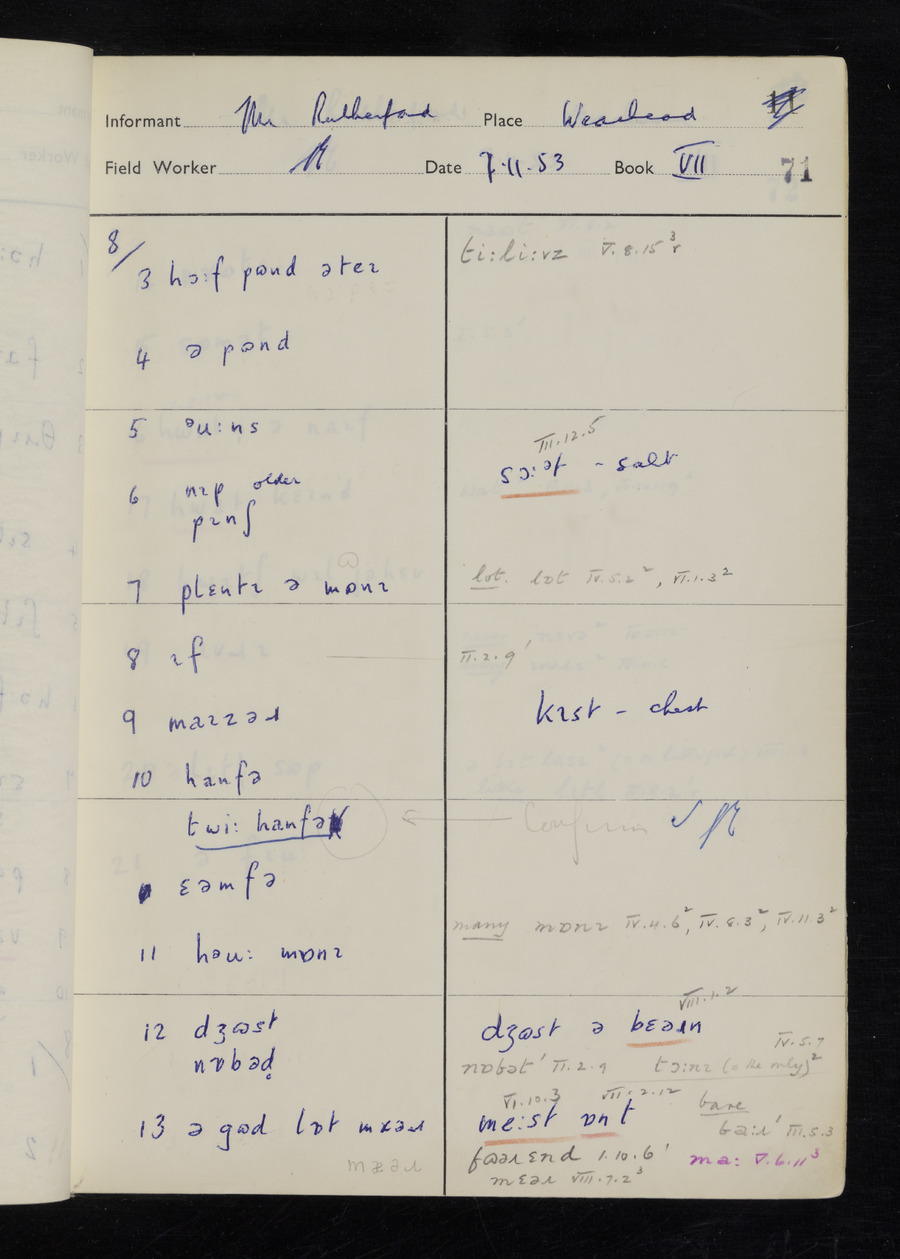 Informant Mr Rutherford Place Wearhead
Field Worker Date 7.11.53 Book VII 71
8/
3 hɔːf pɷnd əteɪ
tiːliːvz V.8.15³
4 ə pɷnd
5 ᵊuːns
III.12.5
sɔːət - salt
6 nɪp older
pɪnʃ
7 plɛntɪ ə mɒnɪ
lot. lɒt IV.5.2², VI.1.3²
8 ɪf
II.2.9'
9
kɪst - chest
10 hanfə
twiː hanfə
Confirm ✓
ɛəmfə
many mɒnɪ IV.4.6², IV.8.3², IV.11.3²
11 həuː mɒnɪ
VIII.1.2
12 dʒɷst
dʒɷst ə bɛəɹn
IV.5.7
nɒbəd̥
nɒbət' II.2.9 tɔːnɪ (= the only)²
VI.10.3 VII.2.12
bare
13 ə gɷd lɒt mɛəɹ
meːst ɒnt
III.5.3
mɛəɹ
fɷəɹɛnd I.10.6'
maː V.6.11³
mɛəɹ VIII.7.2³